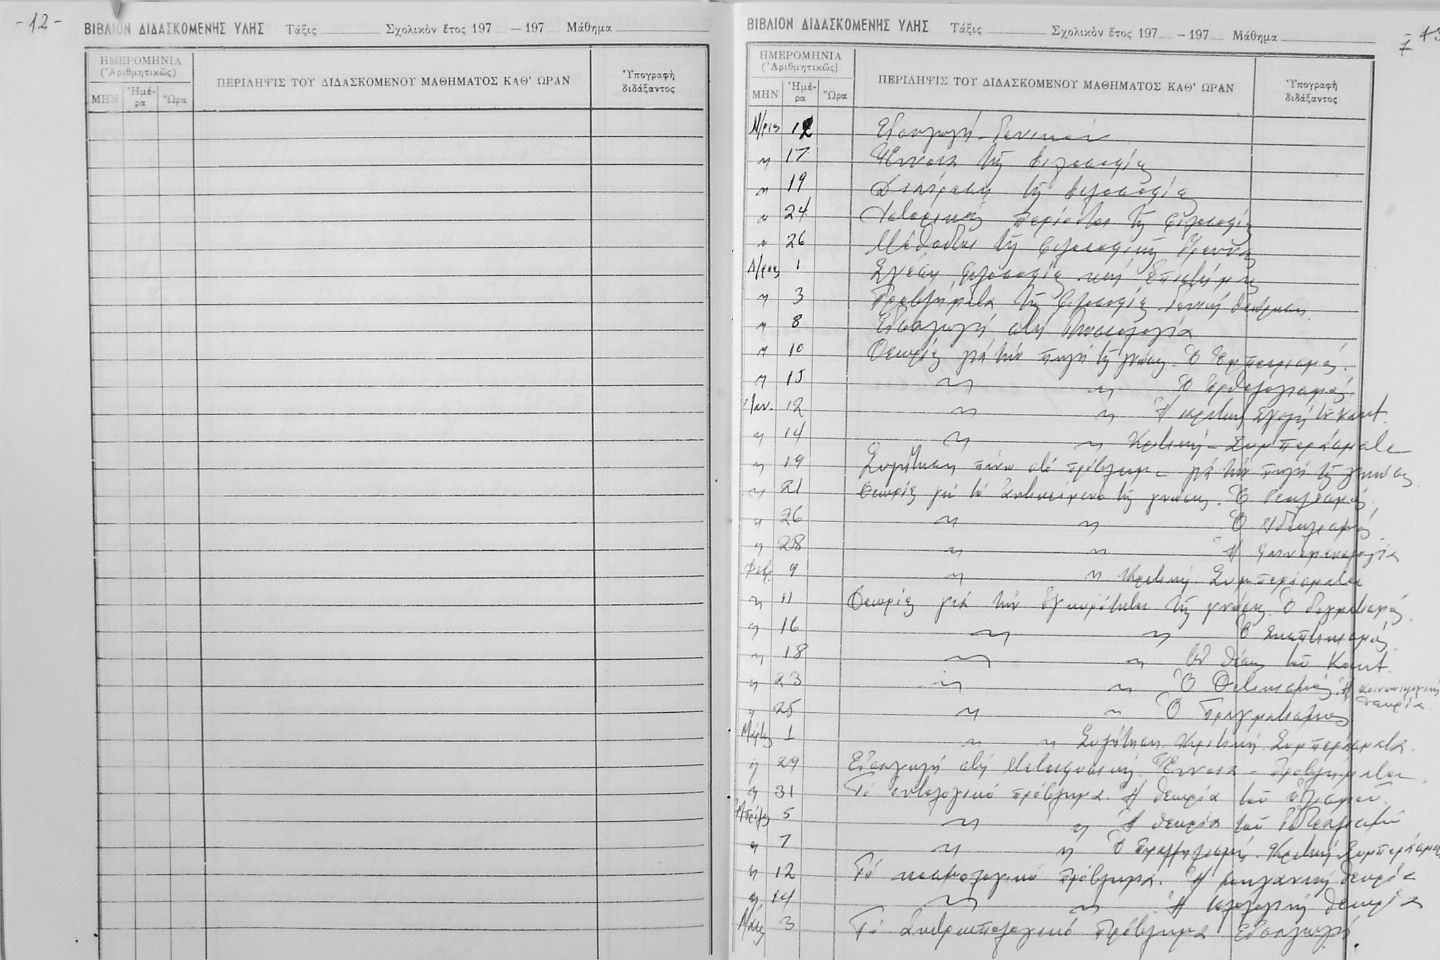 - 12 -
ΒΙΒΛΙΟΝ ΔΙΔΑΣΚΟΜΕΝΗΣ ΥΛΗΣ Τάξις Σχολικὸν ἔτος 197 — 197 Μάθημα
ΗΜΕΡΟΜΗΝΙΑ
(Ἀριθμητικῶς)
ΜΗΝ Ἡμέ-ρα Ὥρα
ΠΕΡΙΛΗΨΙΣ ΤΟΥ ΔΙΔΑΣΚΟΜΕΝΟΥ ΜΑΘΗΜΑΤΟΣ ΚΑΘ' ΩΡΑΝ
Ὑπογραφὴ
διδάξαντος
ΒΙΒΛΙΟΝ ΔΙΔΑΣΚΟΜΕΝΗΣ ΥΛΗΣ Τάξις Σχολικὸν ἔτος 197 — 197 Μάθημα
ΗΜΕΡΟΜΗΝΙΑ
(Ἀριθμητικῶς)
ΜΗΝ Ἡμέ-ρα Ὥρα
ΠΕΡΙΛΗΨΙΣ ΤΟΥ ΔΙΔΑΣΚΟΜΕΝΟΥ ΜΑΘΗΜΑΤΟΣ ΚΑΘ' ΩΡΑΝ
Ὑπογραφὴ
διδάξαντος
Ν/ριος 12 Εἰσαγωγή
" 17 Ἔννοια τῆς φιλοσοφίας
" 19 Διαίρεση τῆς φιλοσοφίας
" 24 Ἱστορικές περίοδοι τῆς φιλοσοφίας
" 26 Μέθοδοι τῆς φιλοσοφικῆς ἔρευνας
Δ/ριος 1 Σχέση φιλοσοφίας καί ἐπιστήμης
" 3 Προβλήματα τῆς φιλοσοφίας. Γενική θεώρηση.
" 8 Εἰσαγωγή στή Γνωσιολογία
" 10 Θεωρίες γιά τήν πηγή τῆς γνώσης. Ὁ Ἐμπειρισμός.
" 15 " " Ὁ Ὀρθολογισμός
Ἰαν. 12 " " Ἡ κριτική Σχολή τοῦ Kant.
" 14 " " Κριτική - Συμπεράσματα
" 19 Συζήτηση πάνω στό πρόβλημα γιά τήν πηγή τῆς γνώσης.
" 21 Θεωρίες γιά τό ἀντικείμενο τῆς γνώσης. Ὁ Ρεαλισμός.
" 26 " " Ὁ Ἰδεαλισμός
" 28 " " Ἡ φαινομενολογία
Φεβρ. 9 " " Κριτική. Συμπεράσματα
" 11 Θεωρίες γιά τήν ἐγκυρότητα τῆς γνώσης. Ὁ δογματισμός.
" 16 " " Ὁ Σκεπτικισμός
" 18 " " Οἱ θέσεις τοῦ Kant.
" 23 " " Ὁ Θετικισμός. Ἡ κοινωνιολογική θεωρία.
" 25 " " Ὁ Πραγματισμός
Μάρτης 1 " " Συζήτηση. Κριτική. Συμπεράσματα.
" 29 Εἰσαγωγή στή Μεταφυσική. Ἔννοια - προβλήματα.
" 31 Τό ὀντολογικό πρόβλημα. Ἡ θεωρία τοῦ ὑλισμοῦ.
Ἀπρίλης 5 " " Ἡ θεωρία τοῦ Ἰδεαλισμοῦ
" 7 " " Ὁ Κριτική. Συμπεράσματα
" 12 Τό κοσμολογικό πρόβλημα. Ἡ μηχανική θεωρία
" 14 " " Ἡ τελολογική θεωρία
Μάης 3 Τό ἀνθρωπολογικό πρόβλημα. Εἰσαγωγή